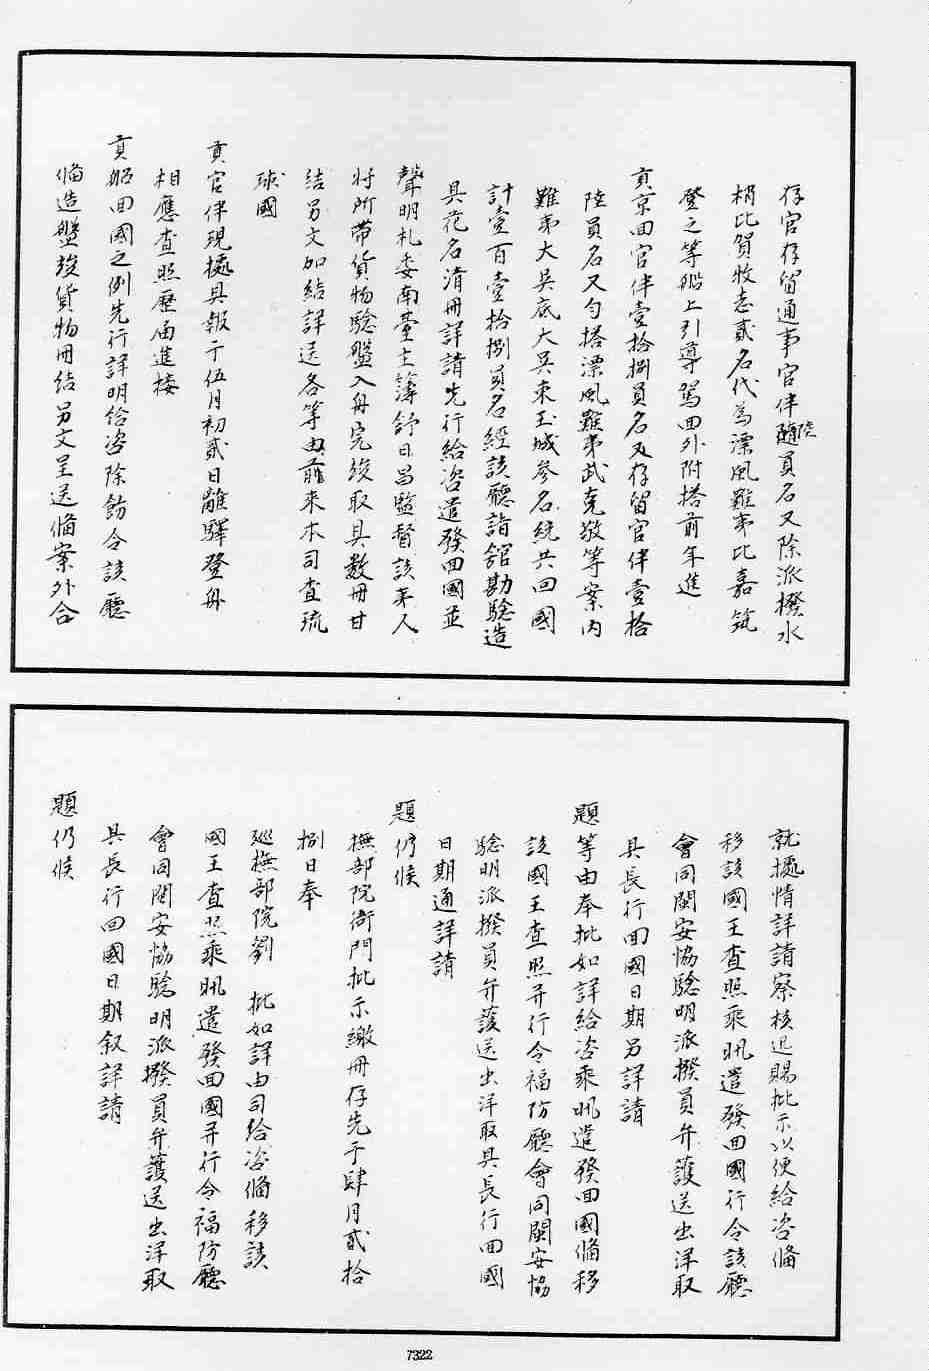 存官存留通事官伴陸員名又除派撥水
梢比賀牧志貳名代為漂風難夷比嘉筑
登之等船上引導駕回外附搭前年進
貢京回官伴壹拾捌員名及存留官伴壹拾
陸員名又勻搭漂風難夷武克敬等案內
難夷大吳底大吳東玉城參名統共回國
計壹百壹拾捌員名經該廳詣舘勘驗造
具花名清冊詳請先行給咨遣發回國並
聲明札委南臺主簿舒日昌監督該夷人
將所帶貨物驗盤入舟完竣取具數冊甘
結另文加結詳送各等由前來本司查琉
球國
貢官伴現據具報于伍月初貳日離驛登舟
相應查照歷屆進接
貢船回國之例先行詳明給咨除飭令該廳
俻造盤竣貨物冊結另文呈送俻案外合
就據情詳請察核迅賜批示以便給咨俻
移該國王查照乘汛遣發回國行令該廳
會同閩安協驗明派撥員弁護送出洋取
具長行回國日期另詳請
題等由奉批如詳給咨乘汛遣發回國俻移
該國王查照并行令福防廳會同閩安協
驗明派撥員弁護送出洋取具長行回國
日期通詳請
題仍候
撫部院衙門批示繳冊存先于肆月貳拾
捌日奉
巡撫部院劉　批如詳由司給咨俻移該
國王查照乘汛遣發回國并行令福防廳
會同閩安協驗明派撥員弁護送出洋取
具長行回國日期叙詳請
題仍候
7322